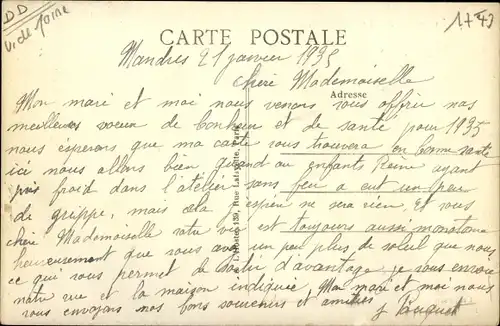 DD
1743
CARTE POSTALE
Mandres 21 janvier 1935
Adresse
chère Mademoiselle
Mon mari et moi nous venons vous offrir nos
meilleurs voeux de bonheur et de santé pour 1935
nous esperons que ma carte vous trouvera en bonne santé
ici nous allons bien quand au enfants Reine ayant
pris froid dans l'atelier sans feu a eut un peu
de grippe, mais cela espère ne sera rien. Et vous
chère Mademoiselle votre vie est toujours aussi monotone
heureusement que vous avez un peu plus de soleil que nous
ce qui vous permet de sortir d'avantage je vous envoie
notre rue et la maison indiquée. Mon mari et moi nous
vous envoyons nos bons souvenirs et amitiés
J Pauquet